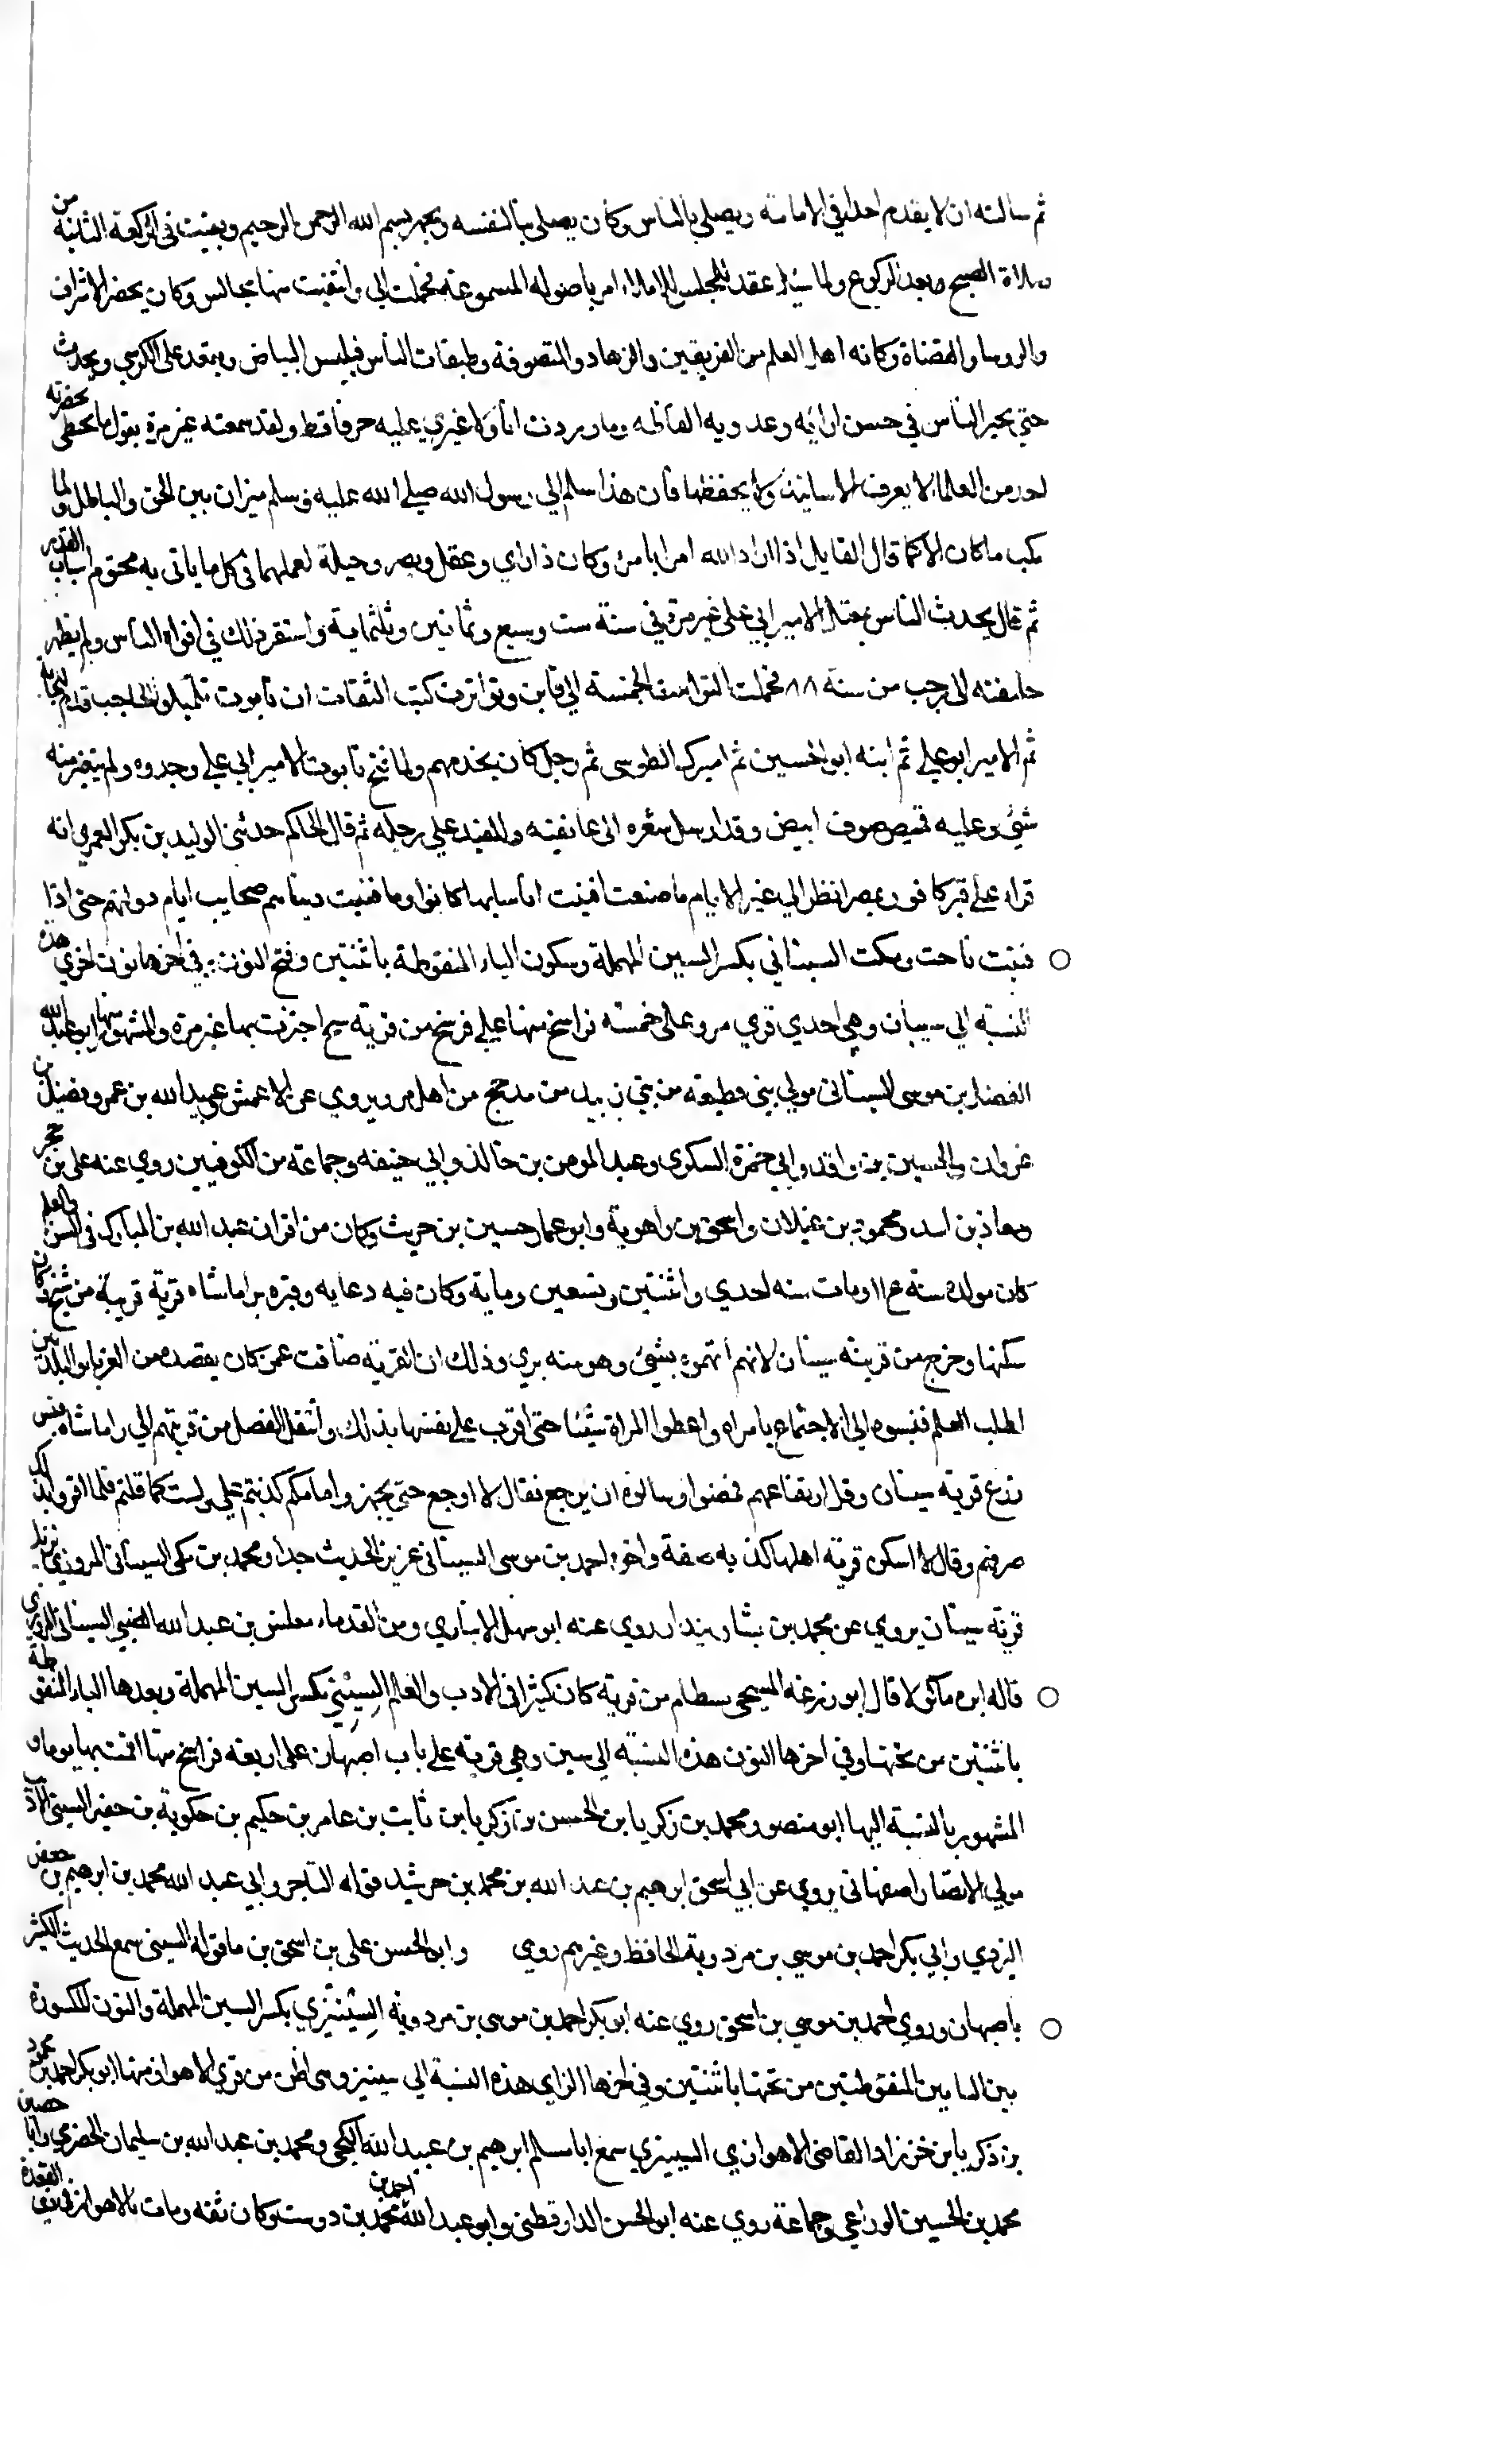 ثم سالته ان لا يقدم احدا في الامامة ويصلي بالناس وكان يصلي بنا لنفسه ويجهر بسم الله الرحمن الرحيم ويقنت في الركعة الثانية من
صلاة الصبح وبعد الركوع ولما سئل عقد المجلس للاملاء امر باصوله المسموعة فحملت الي وانتقيت منها مجالس وكان يحضر الاشراف
والروسا والقضاة وكافه اهل العلم من الفريقين والزهاد والمتصوفة وطبقات الناس فيلبس البياض ويقعد على الكرسي ويحدث
حتى يحير الناس في حسن ادائه وعذوبه الفاظه وما رددت انا ولا غيري عليه حرفا قط ولقد سمعته غير مرة يقول ما يحظى بحضرته
احد من العلماء لا يعرف الاسانيد ولا يحفظها فان هذا سلم الى رسول الله صلى الله عليه وسلم ميزان بين الحق والباطل ولما
نكب ما كان الا كما قال القايل اذا اراد الله امرا بامرئ وكان ذا راي وعقل وبصر وحيلة يعملها في كل ما ياتي به محتوم اسباب القدر
ثم قال يحدث الناس بقتل الامير ابي علي غير مرة في سنة ست وسبع وثمانين وثلثماية واستقر ذلك في افواه الناس ولم يظهر
حقيقته الى رجب من سنة ٨٨ فحملت التوابيت الخمسة الى قاين وتواترت كتب الثقات ان تابوت الحاجب قدام
ثم الامير ابو علي ثم ابنه ابو الحسين ثم اميرك الطوسي ثم رجل كان يخدمهم ولما فتح تابوت الامير ابي علي وجدوه ولم يتغير منه
شيء وعليه قميص صوف ابيض وقد ارسل شعره الى عاتقيه والقيد على رجله ثم قال الحاكم حدثني الوليد بن بكر العمري انه
قراه على قبر كافور بمصر انظر الى غير الايام ما صنعت افنت اناسا بها كانوا وما فنيت دنياهم ايام دولتهم حتى اذا
فنيت ناحت وبكت السيناني بكسر السين المهملة وسكون الياء المنقوطة باثنتين وفتح النون وفي اخرها نون اخرى هذه
النسبة الى سينان وهي احدى قرى مرو على خمسة فراسخ منها على فرسخ من قرية سنج اجتزت بها غير مرة والمشهور منها ابو عبد الله
الفضل بن موسى السيناني مولى بني قطيعة من بني زبيد من مذحج من اهل مرو يروي عن الاعمش وعبيد الله بن عمر وفضيل بن
غزوان والحسين بن واقد وابي حمزة السكري وعبد المومن بن خالد وابي حنيفه وجماعة من الكوفيين روى عنه علي بن حجر
ومعاذ بن اسد ومحمود بن غيلان واسحق بن راهوية وابو عمار حسين بن حريث وكان من اقران عبد الله بن المبارك في السن والعلم
كان مولده سنة ومات سنه احدى واثنتين وتسعين وماية وكان فيه دعابه وقبره براماشاه قرية قريبة من سنج كان
سكنها وخرج من قريته سينان لانهم اتهموه بشيء وهو منه بري وذلك ان القرية ضاقت عمن كان يقصده من الغرباء والبلدتين
لطلب العلم فنسبوه الى الاجتماع بامراة واعطوا المراة شيئا حتى اقرت على نفسها بذلك وانتقل الفضل من قريتهم الى راماشاه فيبس
زرع قرية سينان وقل ارتفاعهم فمضوا وسالوه ان يرجع فقال لا ارجع حتى كذبتم علي ولست كما قلتم فلما اقروا بذلك
صرفهم وقال لا اسكن قرية اهلها كذبه واخوه احمد بن موسى السيناني عزيز الحديث جدا ومحمد بن مكي السيناني المروزي
قرية سينان يروي عن محمد بن بشار بندار روى عنه ابو سهل الانباري ومن القدماء مغلس بن عبد الله الضبي السيناني المروزي
قاله ابن ماكولا قال ابو زرعه السنجي من قرية كان كثيرا في الادب والعلم السيني بكسر السين المهملة وبعدها الياء المنقوطة
باثنتين من تحتها وفي اخرها النون هذه النسبة الى سين وهي قرية على باب اصبهان على اربعة فراسخ منها اقمت بها يوما و
المشهور بالنسبة اليها ابو منصور محمد بن زكريا بن الحسن بن زكريا بن ثابت بن عامر بن حكيم بن حكوية بن السيني الاديب
مولى الانصار اصفهاني يروي عن ابي اسحق ابرهيم بن عبد الله بن محمد بن خرشيد قوله التاجر وابي عبد الله محمد بن ابرهيم بن جعفر
اليزدي وابي بكر احمد بن موسى بن مردوية الحافظ وغيرهم روى وابو الحسن علي بن اسحق بن ماقوله السيني سمع الحديث الكثير
باصبهان وروى احمد بن موسى بن اسحق روى عنه ابو بكر احمد بن موسى بن مردوية السينيزي بكسر السين المهملة والنون المكسورة
بين اليايين المنقوطتين من تحتها باثنتين وفي اخرها الزاي هذه النسبة الى سينيز وهي اظن من قرى الاهواز منها ابو بكر احمد بن محمود
بن زكريا بن خرزاد القاضي الاهوازي السينيزي سمع ابا مسلم ابرهيم بن عبد الله الكجي ومحمد بن عبد الله بن سليمان الحضرمي وابا حصين
محمد بن الحسين الوادعي وجماعة روى عنه ابو الحسن الدارقطني وابو عبد الله احمد بن محمد بن دوست وكان ثقه ومات بالاهواز في ذي القعدة